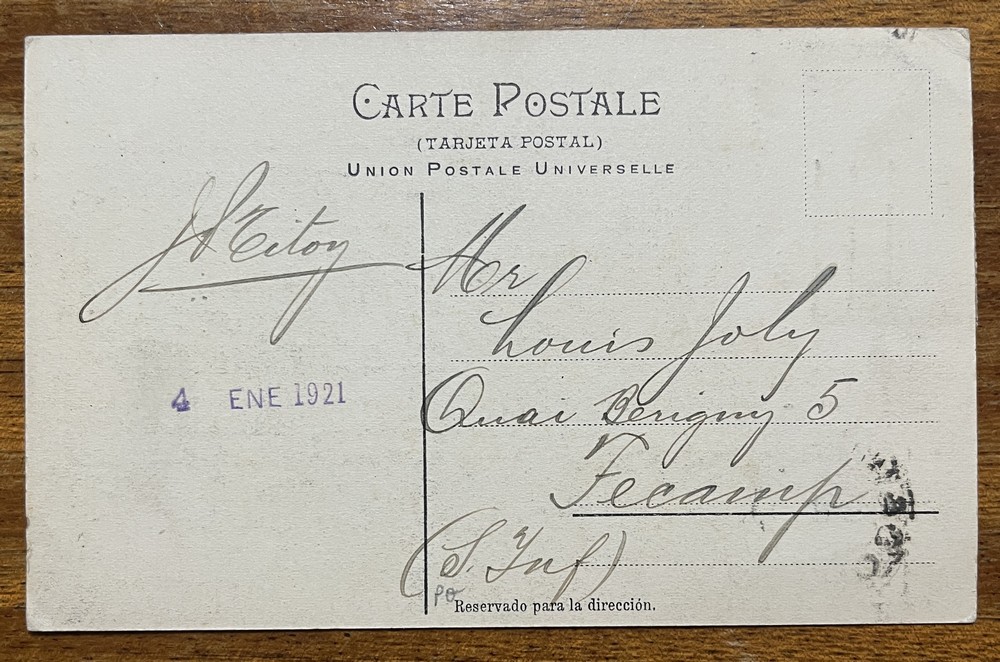 CARTE POSTALE
(TARJETA POSTAL)
UNION POSTALE UNIVERSELLE
Mr
Louis Joly
Quai Berigny 5
Fecamp
(S. Inf)
4 ENE 1921
PO
Reservado para la dirección.